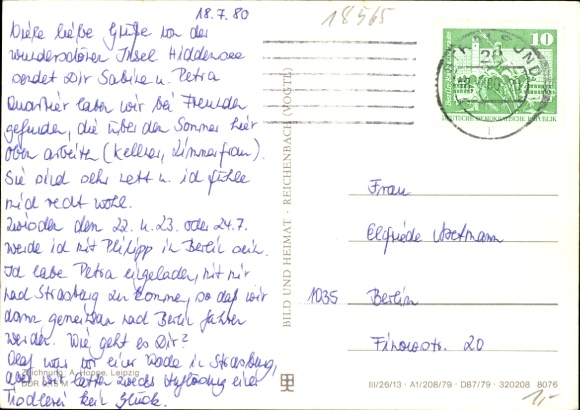 18.7.80
18565
Liebe liebe Grüße von der
wunderschönen Insel Hiddensee
sendet Dir Sabine u. Petra
Quartier haben wir bei Freunden
gefunden, die über den Sommer hier
oben arbeiten (Kellner, Zimmerfrau).
Sie sind sehr nett u. ich fühle
mich recht wohl.
Zwischen den 22. u. 23. oder 24.7.
werde ich mit Philipp in Berlin sein.
Ich habe Petra eingeladen, mit mir
nach Strasburg zu kommen, so daß wir
dann gemeinsam nach Berlin fahren
werden. Wie geht es Dir?
Olaf war vor einer Woche in Strasburg,
aber wir hatten zwecks Auflösung einer
Tischlerei kein Glück.
Zeichnung: A. Hoppe, Leipzig
DDR 0,15 M
BILD UND HEIMAT · REICHENBACH (VOGTL)
10
DEUTSCHE DEMOKRATISCHE REPUBLIK
Frau
Elfriede
1035 Berlin
Finowstr. 20
III/26/13 · A1/208/79 · 087/79 · 320208 8076
1,-